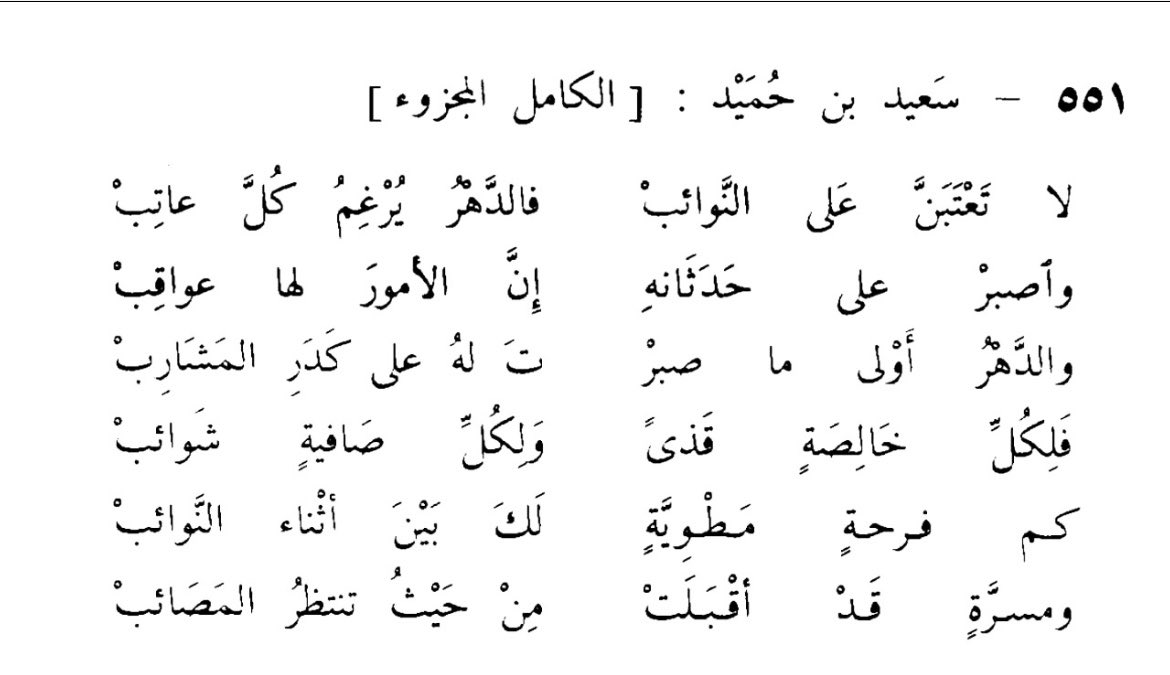 ٥٥١ – سَعيد بن حُمَيْد : [ الكامل المجزوء ]
لا تَعْتَبَنَّ عَلى النَّوائبْ فالدَّهْرُ يُرْغِمُ كُلَّ عاتِبْ
وٱصبرْ على حَدَثَانهِ إِنَّ الأمورَ لها عواقِبْ
والدَّهْرُ أَوْلى ما صبرْ تَ لهُ على كَدَرِ المَشَارِبْ
فَلِكُلِّ خَالِصَةٍ قَذىً وَلِكُلِّ صَافيةٍ شَوائبْ
كم فرحةٍ مَطْوِيَّةٍ لَكَ بَيْنَ أثْناء النَّوائبْ
ومسرَّةٍ قَدْ أقْبَلَتْ مِنْ حَيْثُ تنتظرُ المَصَائبْ